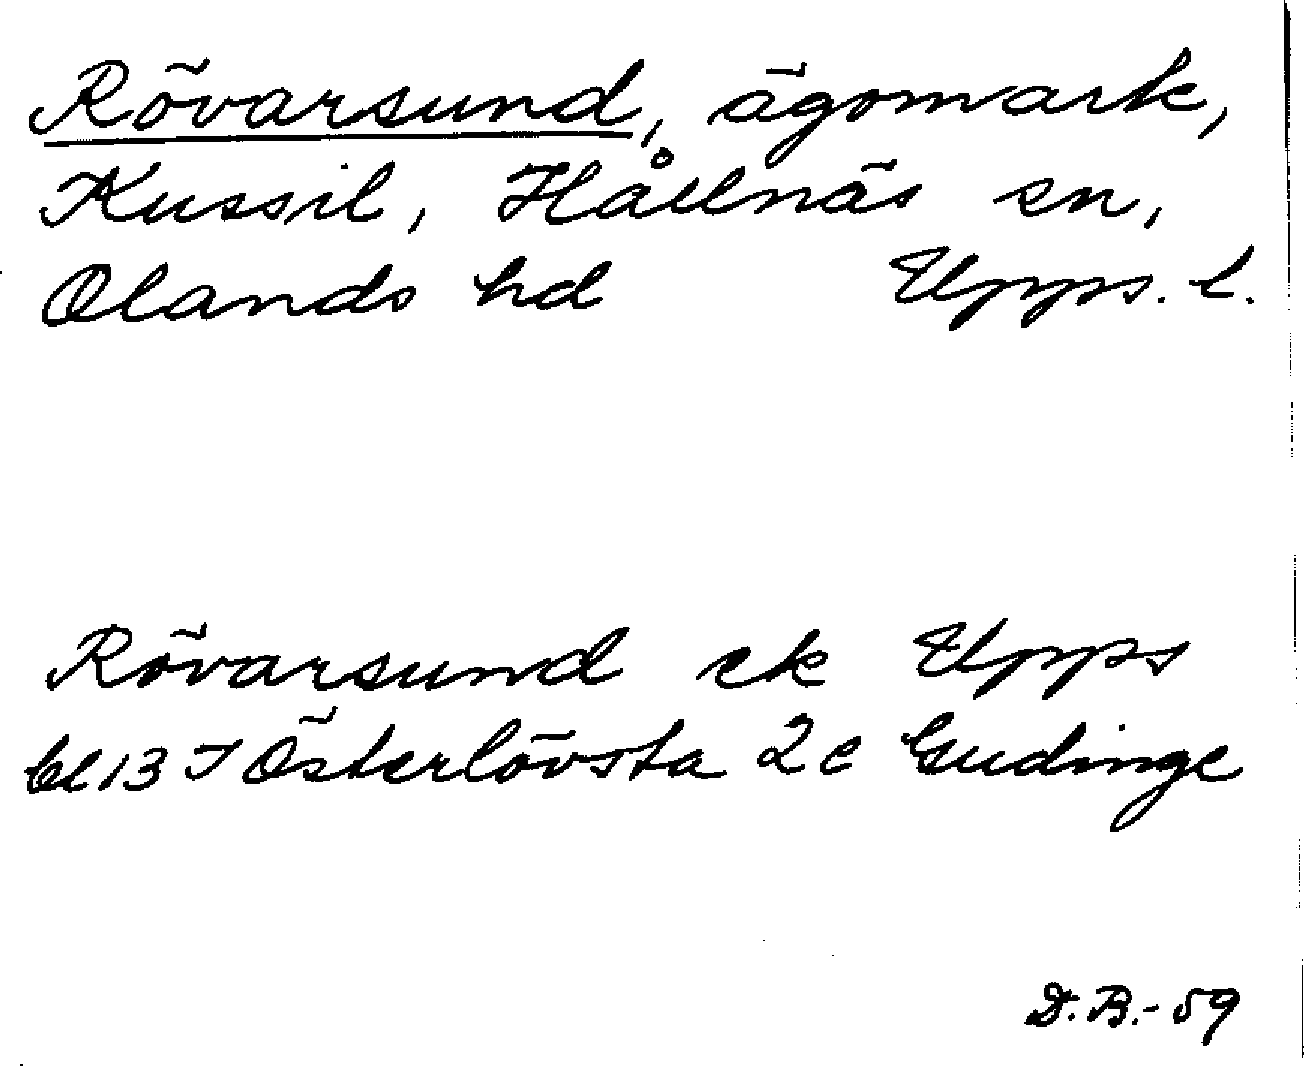 Rövarsund, ägomark,
Kussil, Hållnäs sn,
Olands hd Upps. l.
Rövarsund ek Upps
bl 13 I Österlövsta 2 e Gudinge
D.B.-59